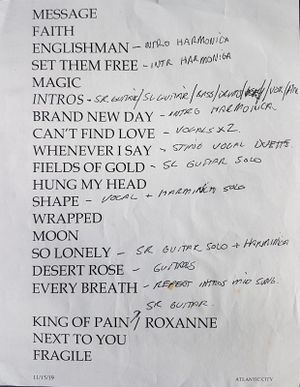 MESSAGE
FAITH
ENGLISHMAN - INTRO HARMONICA
SET THEM FREE - INTR HARMONICA
MAGIC
INTROS - SR GUITAR/SL GUITAR/BASS/DRUMS/KEYS/VOX/
BRAND NEW DAY - INTRO HARMONICA.
CAN'T FIND LOVE - VOCALS X2.
WHENEVER I SAY - STING VOCAL DUETTE.
FIELDS OF GOLD - SL GUITAR SOLO
HUNG MY HEAD
SHAPE - VOCAL + HARMINCA SOLO
WRAPPED
MOON
SO LONELY - SR GUITAR SOLO + HARMINCA
DESERT ROSE - GUITARS
EVERY BREATH - REPEAT INTROS MID SONG.
SR GUITAR.
KING OF PAIN? / ROXANNE
NEXT TO YOU
FRAGILE
11/15/19 ATLANTIC CITY